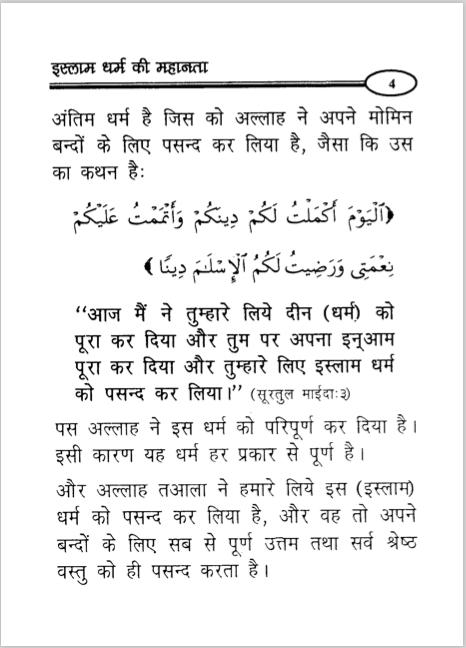 इस्लाम धर्म की महानता
4
अंतिम धर्म है जिस को अल्लाह ने अपने मोमिन
बन्दों के लिए पसन्द कर लिया है, जैसा कि उस
का कथन हैः
﴿ٱلْيَوْمَ أَكْمَلْتُ لَكُمْ دِينَكُمْ وَأَتْمَمْتُ عَلَيْكُمْ
نِعْمَتِى وَرَضِيتُ لَكُمُ ٱلْإِسْلَٰمَ دِينًا﴾
“आज मैं ने तुम्हारे लिये दीन (धर्म) को
पूरा कर दिया और तुम पर अपना इन्आम
पूरा कर दिया और तुम्हारे लिए इस्लाम धर्म
को पसन्द कर लिया।” (सूरतुल माईदाः३)
पस अल्लाह ने इस धर्म को परिपूर्ण कर दिया है।
इसी कारण यह धर्म हर प्रकार से पूर्ण है।
और अल्लाह तआला ने हमारे लिये इस (इस्लाम)
धर्म को पसन्द कर लिया है, और वह तो अपने
बन्दों के लिए सब से पूर्ण उत्तम तथा सर्व श्रेष्ठ
वस्तु को ही पसन्द करता है।